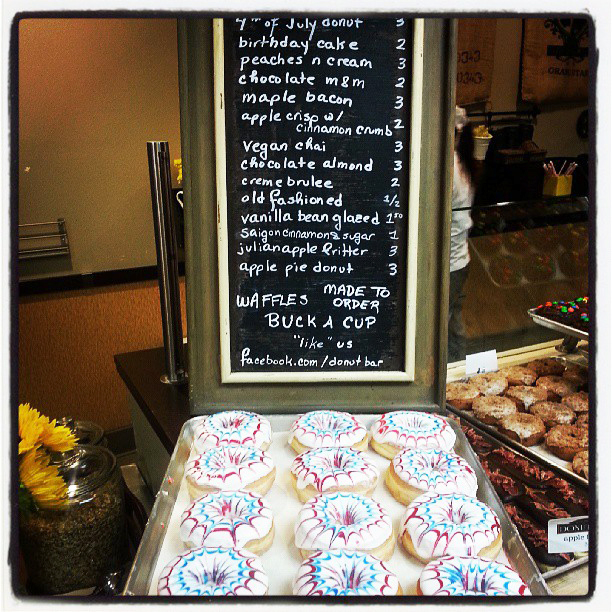 4th of July donut 3
birthday cake 2
peaches n cream 3
chocolate m&m 2
maple bacon 3
apple crisp w/
cinnamon crumb 2
vegan chai 3
chocolate almond 3
creme brulee 2
old fashioned 1/2
vanilla bean glazed 1.50
saigon cinnamon & sugar 1
julian apple fritter 3
apple pie donut 3
WAFFLES MADE TO
ORDER
BUCK A CUP
"like" us
facebook.com/donutbar
apple